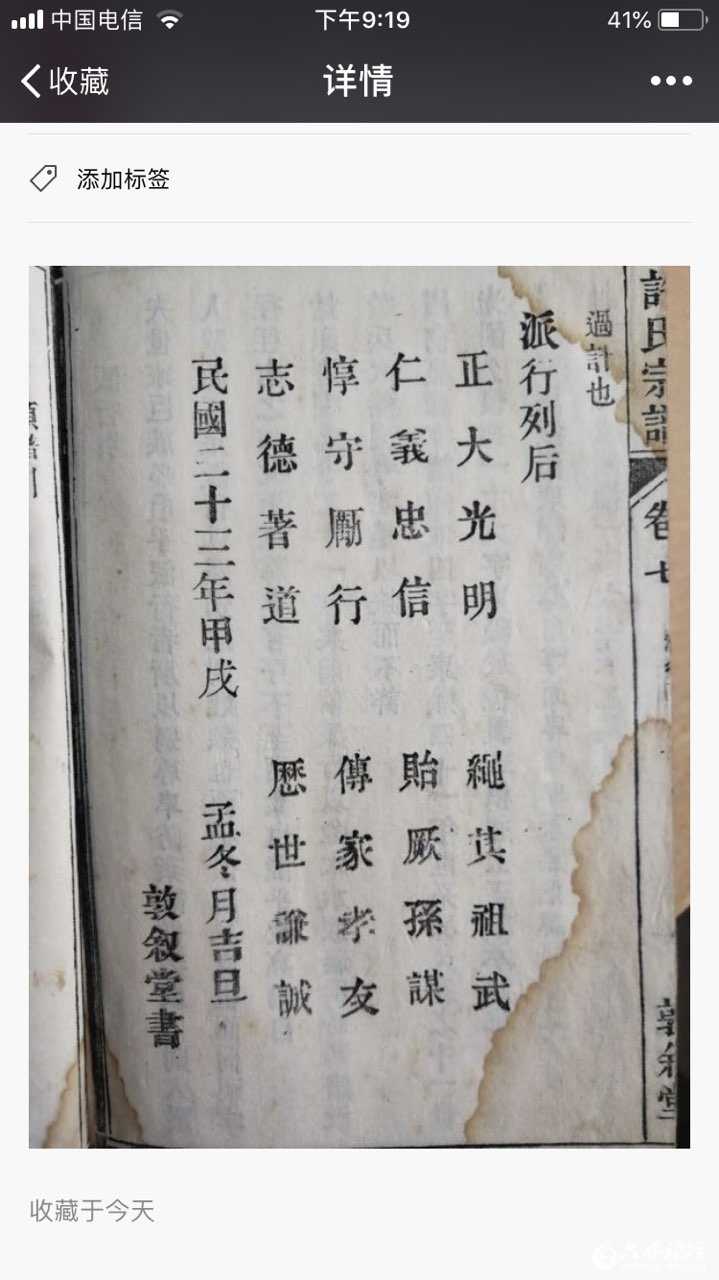 中国电信
下午9:19
41%
收藏
详情
添加标签
許氏宗譜
卷七
敦叙堂
過計也
派行列后
正大光明 繩其祖武
仁義忠信 貽厥孫謀
惇守勵行 傳家孝友
志德著道 歷世謙誠
民國二十三年甲戌 孟冬月吉旦
敦叙堂書
收藏于今天